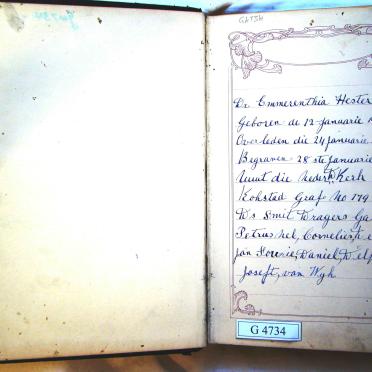 G4734
Emmerenthia Hester
Geboren de 12 Januarie
Overleden die 24 Januarie
Begraven 28 ste Januarie
Vuut die Nederd Kerk
Kohstad Graf No 179
Ds Smit Dragers
Petrus Nel, Cornelies
Jan Lourie, Daniel
Joseft, van Wyk
G 4734